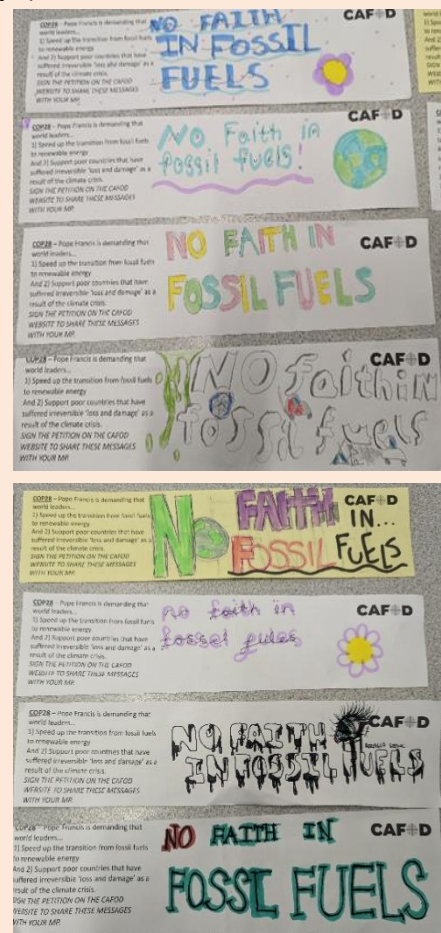 COP28 – Pope Francis is demanding that
world leaders...
1) Speed up the transition from fossil fuels
to renewable energy
And 2) Support poor countries that have
suffered irreversible 'loss and damage' as a
result of the climate crisis.
SIGN THE PETITION ON THE CAFOD
WEBSITE TO SHARE THESE MESSAGES
WITH YOUR MP.
NO FAITH
IN FOSSIL
FUELS
CAFOD
COP28 – Pope Francis is demanding that
world leaders...
1) Speed up the transition from fossil fuels
to renewable energy
And 2) Support poor countries that have
suffered irreversible 'loss and damage' as a
result of the climate crisis.
SIGN THE PETITION ON THE CAFOD
WEBSITE TO SHARE THESE MESSAGES
WITH YOUR MP.
No Faith in
fossil fuels!
CAFOD
COP28 – Pope Francis is demanding that
world leaders...
1) Speed up the transition from fossil fuels
to renewable energy
And 2) Support poor countries that have
suffered irreversible 'loss and damage' as a
result of the climate crisis.
SIGN THE PETITION ON THE CAFOD
WEBSITE TO SHARE THESE MESSAGES
WITH YOUR MP.
NO FAITH IN
FOSSIL FUELS
CAFOD
COP28 – Pope Francis is demanding that
world leaders...
1) Speed up the transition from fossil fuels
to renewable energy
And 2) Support poor countries that have
suffered irreversible 'loss and damage' as a
result of the climate crisis.
SIGN THE PETITION ON THE CAFOD
WEBSITE TO SHARE THESE MESSAGES
WITH YOUR MP.
NO faith in
fossil fuels
CAFOD
COP28 – Pope Francis is demanding that
world leaders...
1) Speed up the transition from fossil fuels
to renewable energy
And 2) Support poor countries that have
suffered irreversible 'loss and damage' as a
result of the climate crisis.
SIGN THE PETITION ON THE CAFOD
WEBSITE TO SHARE THESE MESSAGES
WITH YOUR MP.
No FAITH IN...
FOSSIL FUELS
CAFOD
COP28 – Pope Francis is demanding that
world leaders...
1) Speed up the transition from fossil fuels
to renewable energy
And 2) Support poor countries that have
suffered irreversible 'loss and damage' as a
result of the climate crisis.
SIGN THE PETITION ON THE CAFOD
WEBSITE TO SHARE THESE MESSAGES
WITH YOUR MP.
no faith in
fossel fules
CAFOD
COP28 – Pope Francis is demanding that
world leaders...
1) Speed up the transition from fossil fuels
to renewable energy
And 2) Support poor countries that have
suffered irreversible 'loss and damage' as a
result of the climate crisis.
SIGN THE PETITION ON THE CAFOD
WEBSITE TO SHARE THESE MESSAGES
WITH YOUR MP.
NO FAITH
IN FOSSIL FUELS
CAFOD
COP28 – Pope Francis is demanding that
world leaders...
1) Speed up the transition from fossil fuels
to renewable energy
And 2) Support poor countries that have
suffered irreversible 'loss and damage' as a
result of the climate crisis.
SIGN THE PETITION ON THE CAFOD
WEBSITE TO SHARE THESE MESSAGES
WITH YOUR MP.
NO FAITH IN
FOSSIL FUELS
CAFOD